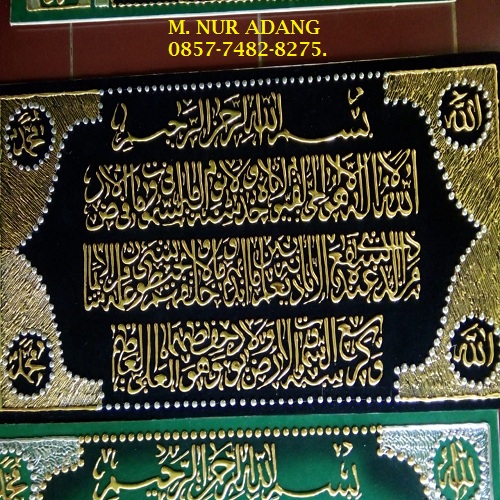 M. NUR ADANG
0857-7482-8275.
بسم الله الرحمن الرحيم
الله محمد
الله لا إله إلا هو الحي القيوم لا تأخذه سنة ولا نوم له ما في السموات وما في الأرض
من ذا الذي يشفع عنده إلا بإذنه يعلم ما بين أيديهم وما خلفهم ولا يحيطون بشيء من علمه إلا بما شاء
وسع كرسيه السموات والأرض ولا يؤده حفظهما وهو العلي العظيم
الله محمد
بسم الله الرحمن الرحيم
الله